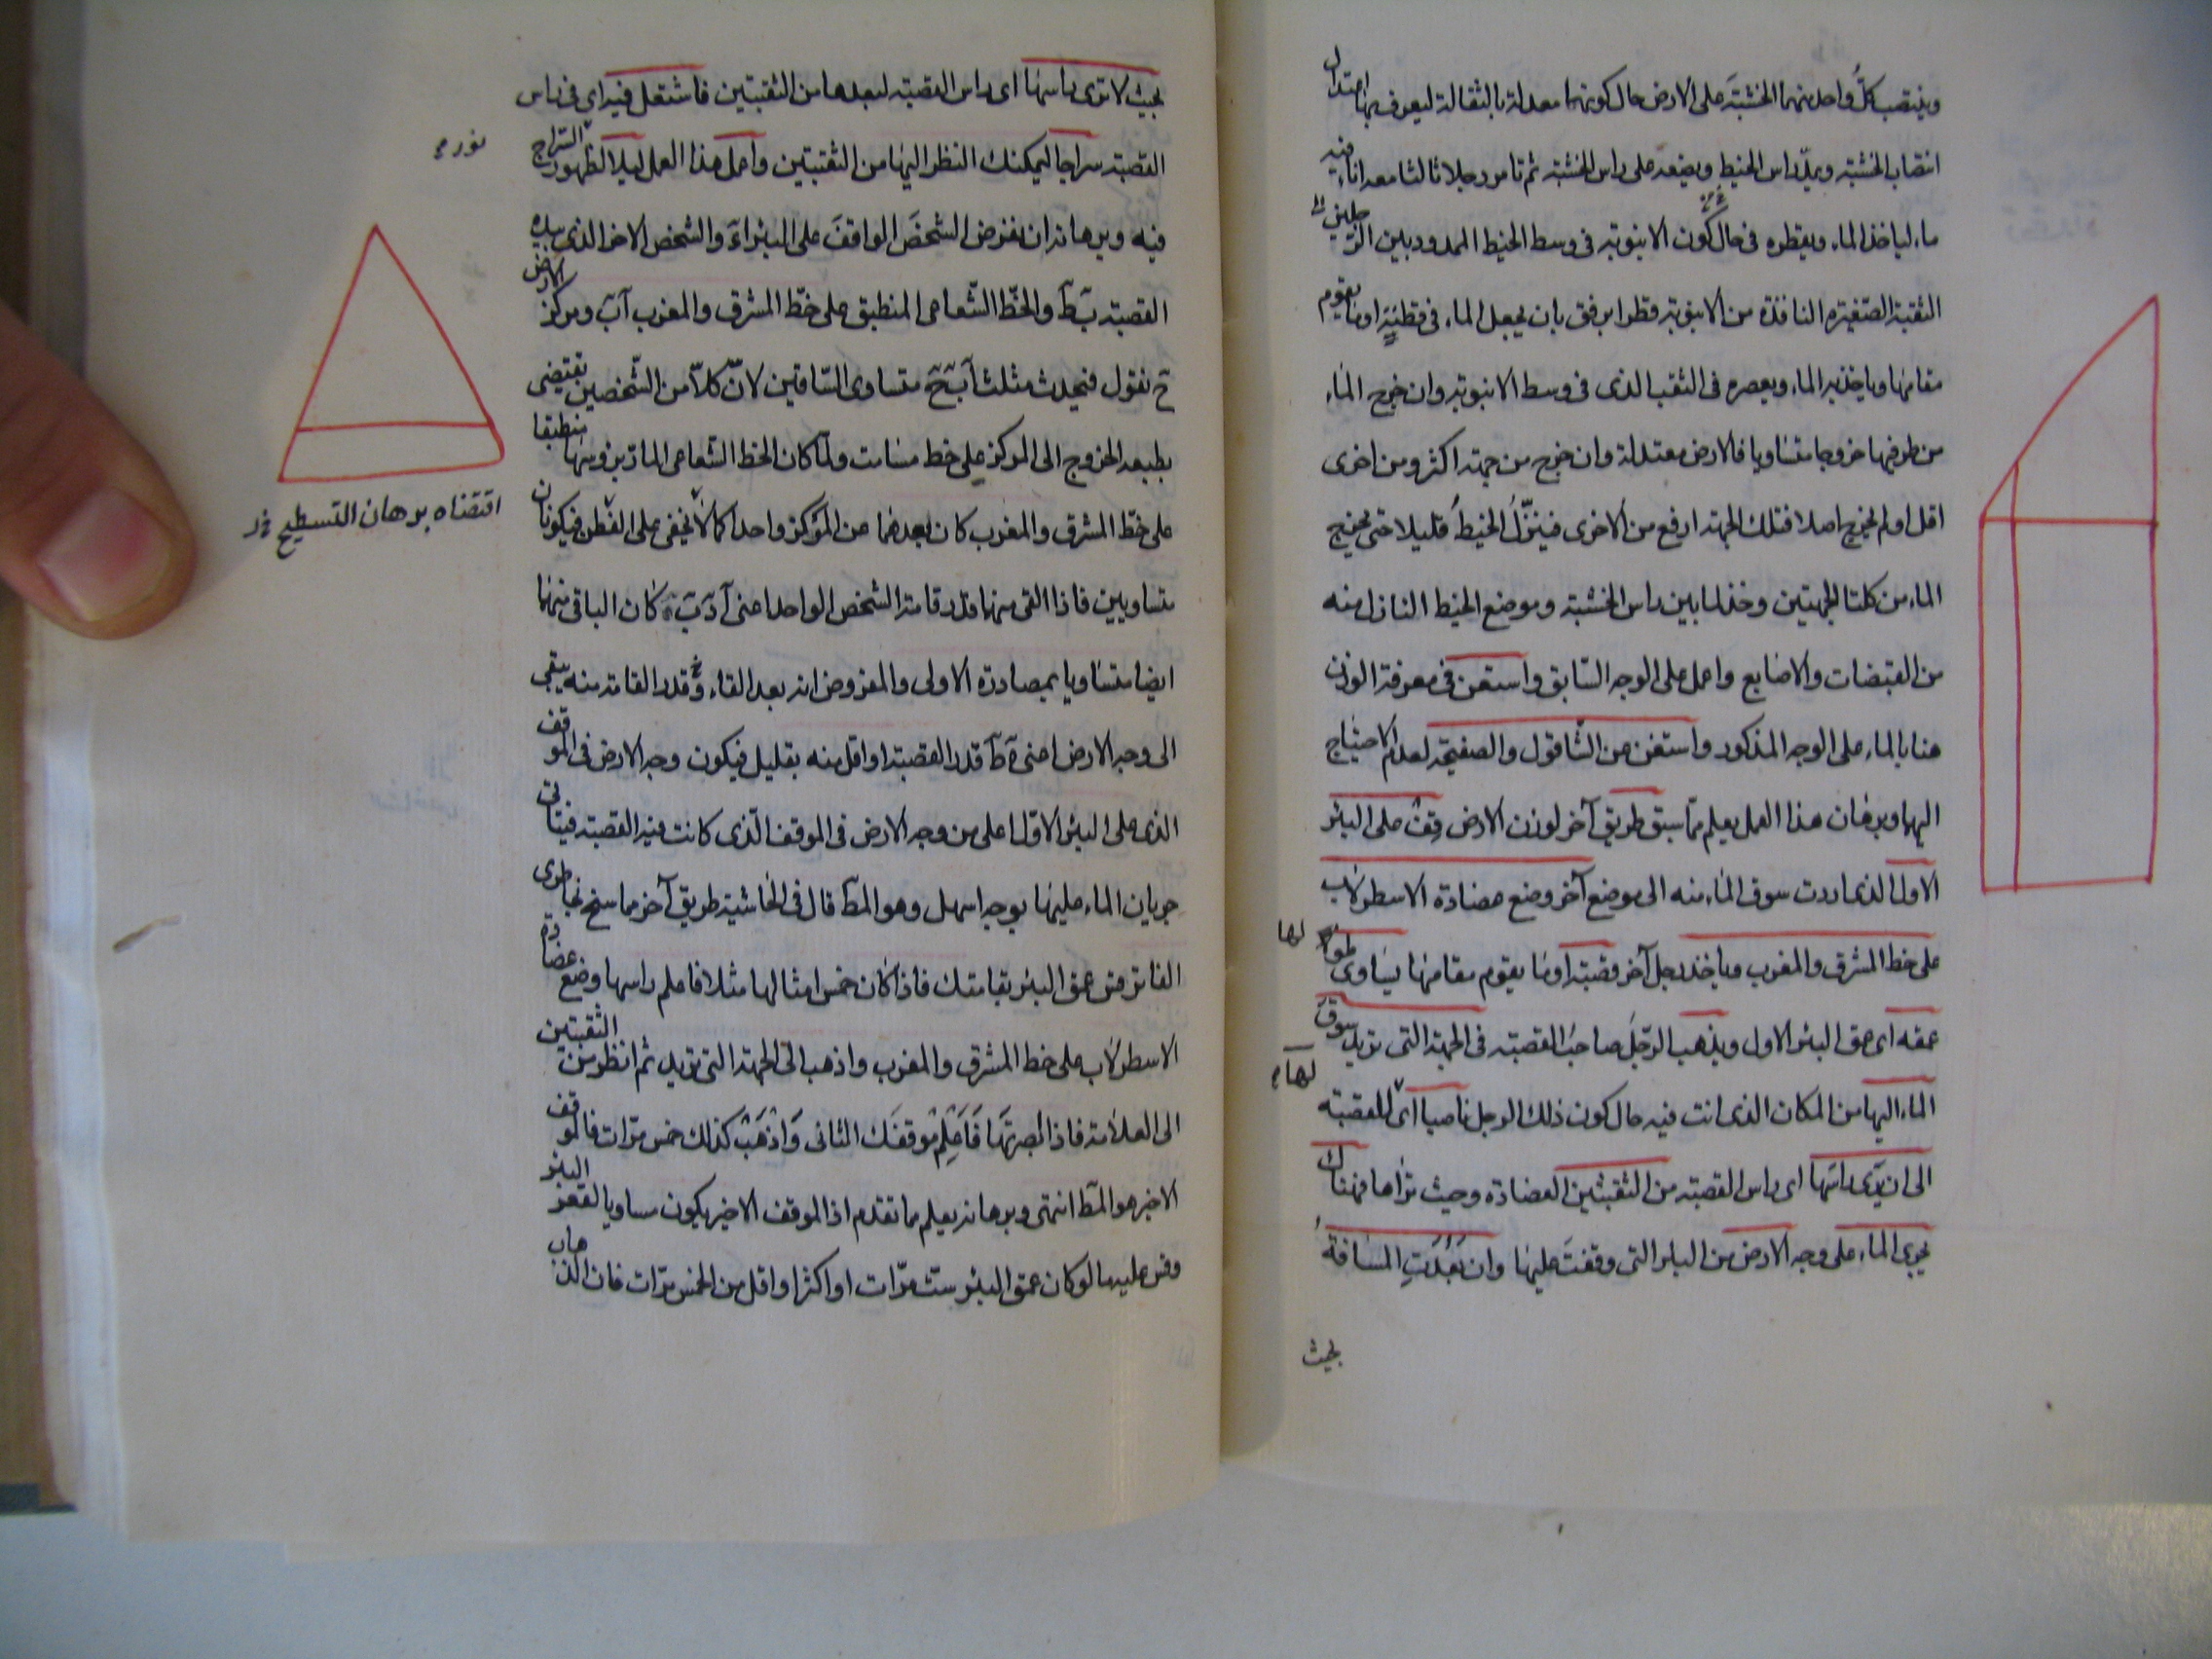 وينصب كلّ واحد منهما الخشبة على الارض حال كونهما معدلة بالثقالة ليعرف بها اعتدال
انتصاب الخشبة ويمدّ راس الخيط ويضعه على راس الخشبة ثم تامر رجلا ثالثا معه اناء فيه
ماء لياخذ الماء ويقطره فى حال كون الانبوبة فى وسط الخيط الممدود بين الرجلين الى
الثقبة الصغيرة النافذة من الانبوبة قطرا برفق بان يجعل الماء فى قطنة او ما يقوم
مقامها وياخذ به الماء ويعصره فى الثقب الذى فى وسط الانبوبة وان خرج الماء
من طرفيها خروجا متساويا فالارض معتدلة وان خرج من جهة اكثر ومن اخرى
اقل او لم يخرج اصلا فتلك الجهة ارفع من الاخرى فينزّل الخيط قليلا حتى يخرج
الماء من كلتا الجهتين وخذ ما بين راس الخشبة وموضع الخيط النازل منه
من القبضات والاصابع واعمل على الوجه السّابق واستعن فى معرفة الوزن
هنا بالماء على الوجه المذكور واستغن عن الشّاقول والصفيحة لعدم الاحتياج
اليهما وبرهان هذا العمل يعلم ممّا سبق طريق آخر لوزن الارض قف على البئر
الاول الذى اردت سوق الماء منه الى موضع آخر وضع عضادة الاسطرلاب
على خط المشرق والمغرب وياخذ رجل آخر قصبة او ما يقوم مقامها يساوى طولها
لها
عمقه اى عمق البئر الاول ويذهب الرّجل صاحب القصبة فى الجهة التى تريد سوق
الماء اليها من المكان الذى انت فيه حال كون ذلك الرجل ناصبا اى للقصبة
لها
الى ان ترى راسها اى راس القصبة من الثقبتين العضادة وحيث تراها فهناك
يجرى الماء على وجه الارض من البئر التى وقفت عليها وان بعدت المسافة
بحيث
بحيث لا ترى راسها اى راس القصبة لبعدها من الثقبتين فاشتعل فيه اى فى راس
القصبة سراجا ليمكنك النظر اليها من الثقبتين واعمل هذا العمل ليلا لظهور السّراج
نوره
فيه وبرهانه ان نفرض الشخص الواقف على البئر ا ء والشخص الاخر الذى بيده
القصبة ب ط والخطّ الشّعاعى المنطبق على خطّ المشرق والمغرب آب ومركز الارض
ح نقول فيحدث مثلث آ ب ح متساوى السّاقين لانّ كلاّ من الشّخصين تقتضى
بطبعه الخروج الى المركز على خط مسامت ولمّا كان الخط الشّعاعى المارّ بروسهما منطبقا
على خطّ المشرق والمغرب كان بعدهما عن المركز واحدا كما لا يخفى على الفطن فيكونان
اقتضاه برهان التسطيح
متساويين فاذا القى منهما قدر قامة الشخص الواحد اعنى آ د ب ه كان الباقى منهما
ايضا متساويا بمصادرة الاولى والمفروض انه بعد القاء قدر القامة منه يبقى
الى وجه الارض اعنى ه ط قدر القصبة او اقل منه بقليل فيكون وجه الارض فى الموقف
الذى على البئر الاوّل اعلى من وجه الارض فى الموقف الّذى كانت فيه القصبة فيتاتى
جريان الماء عليها بوجه اسهل وهو المط قال فى الحاشية طريق آخر مما سنح بخاطرى
الفاتر قس عمق البئر بقامتك فاذا كان خمس امثالها مثلا فاعلم راسها وضع عضادة
الاسطرلاب على خط المشرق والمغرب واذهب الى الجهة التى تريد ثم انظر من الثقبتين
الى العلامة فاذا ابصرتها فاعلم موقفك الثانى واذهب كذلك خمس مرّات فالموقف
الاخير هو المط انتهى وبرهانه يعلم ما تقدم اذ الموقف الاخير يكون مساويا لقعر البئر
وقس عليه ما لو كان عمق البئر ست مرّات او اكثر او اقل من الخمس مرّات فان الذهاب